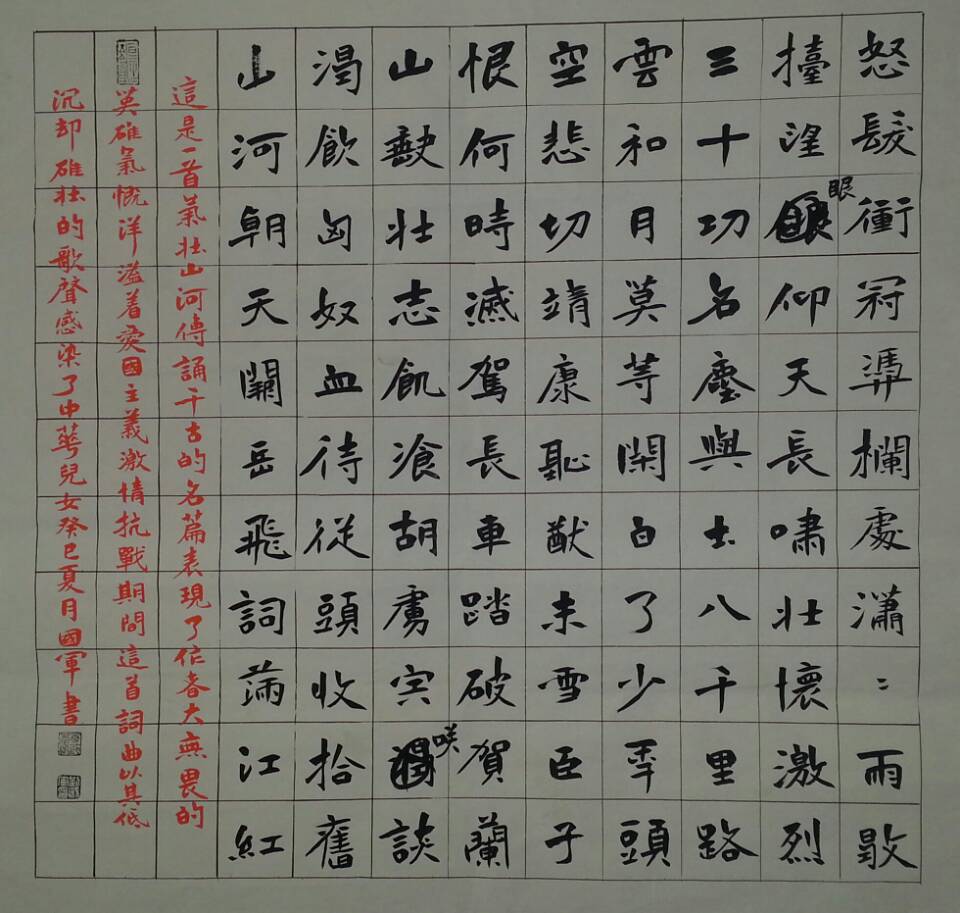 怒髮衝冠憑欄處瀟〻雨歇
擡望眼仰天長嘯壯懷激烈
三十功名塵與土八千里路
雲和月莫等閑白了少年頭
空悲切靖康恥猷未雪臣子
恨何時滅駕長車踏破賀蘭
山缺壯志飢飡胡虜宍咲談
渴飲匈奴血待從頭收拾舊
山河朝天闕岳飛詞滿江紅
這是一首氣壯山河傳誦千古的名篇表現了作者大無畏的
英雄氣慨洋溢着愛國主義激情抗戰期間這首詞曲以其低
沉却雄壯的歌聲感染了中華兒女癸巳夏月國軍書